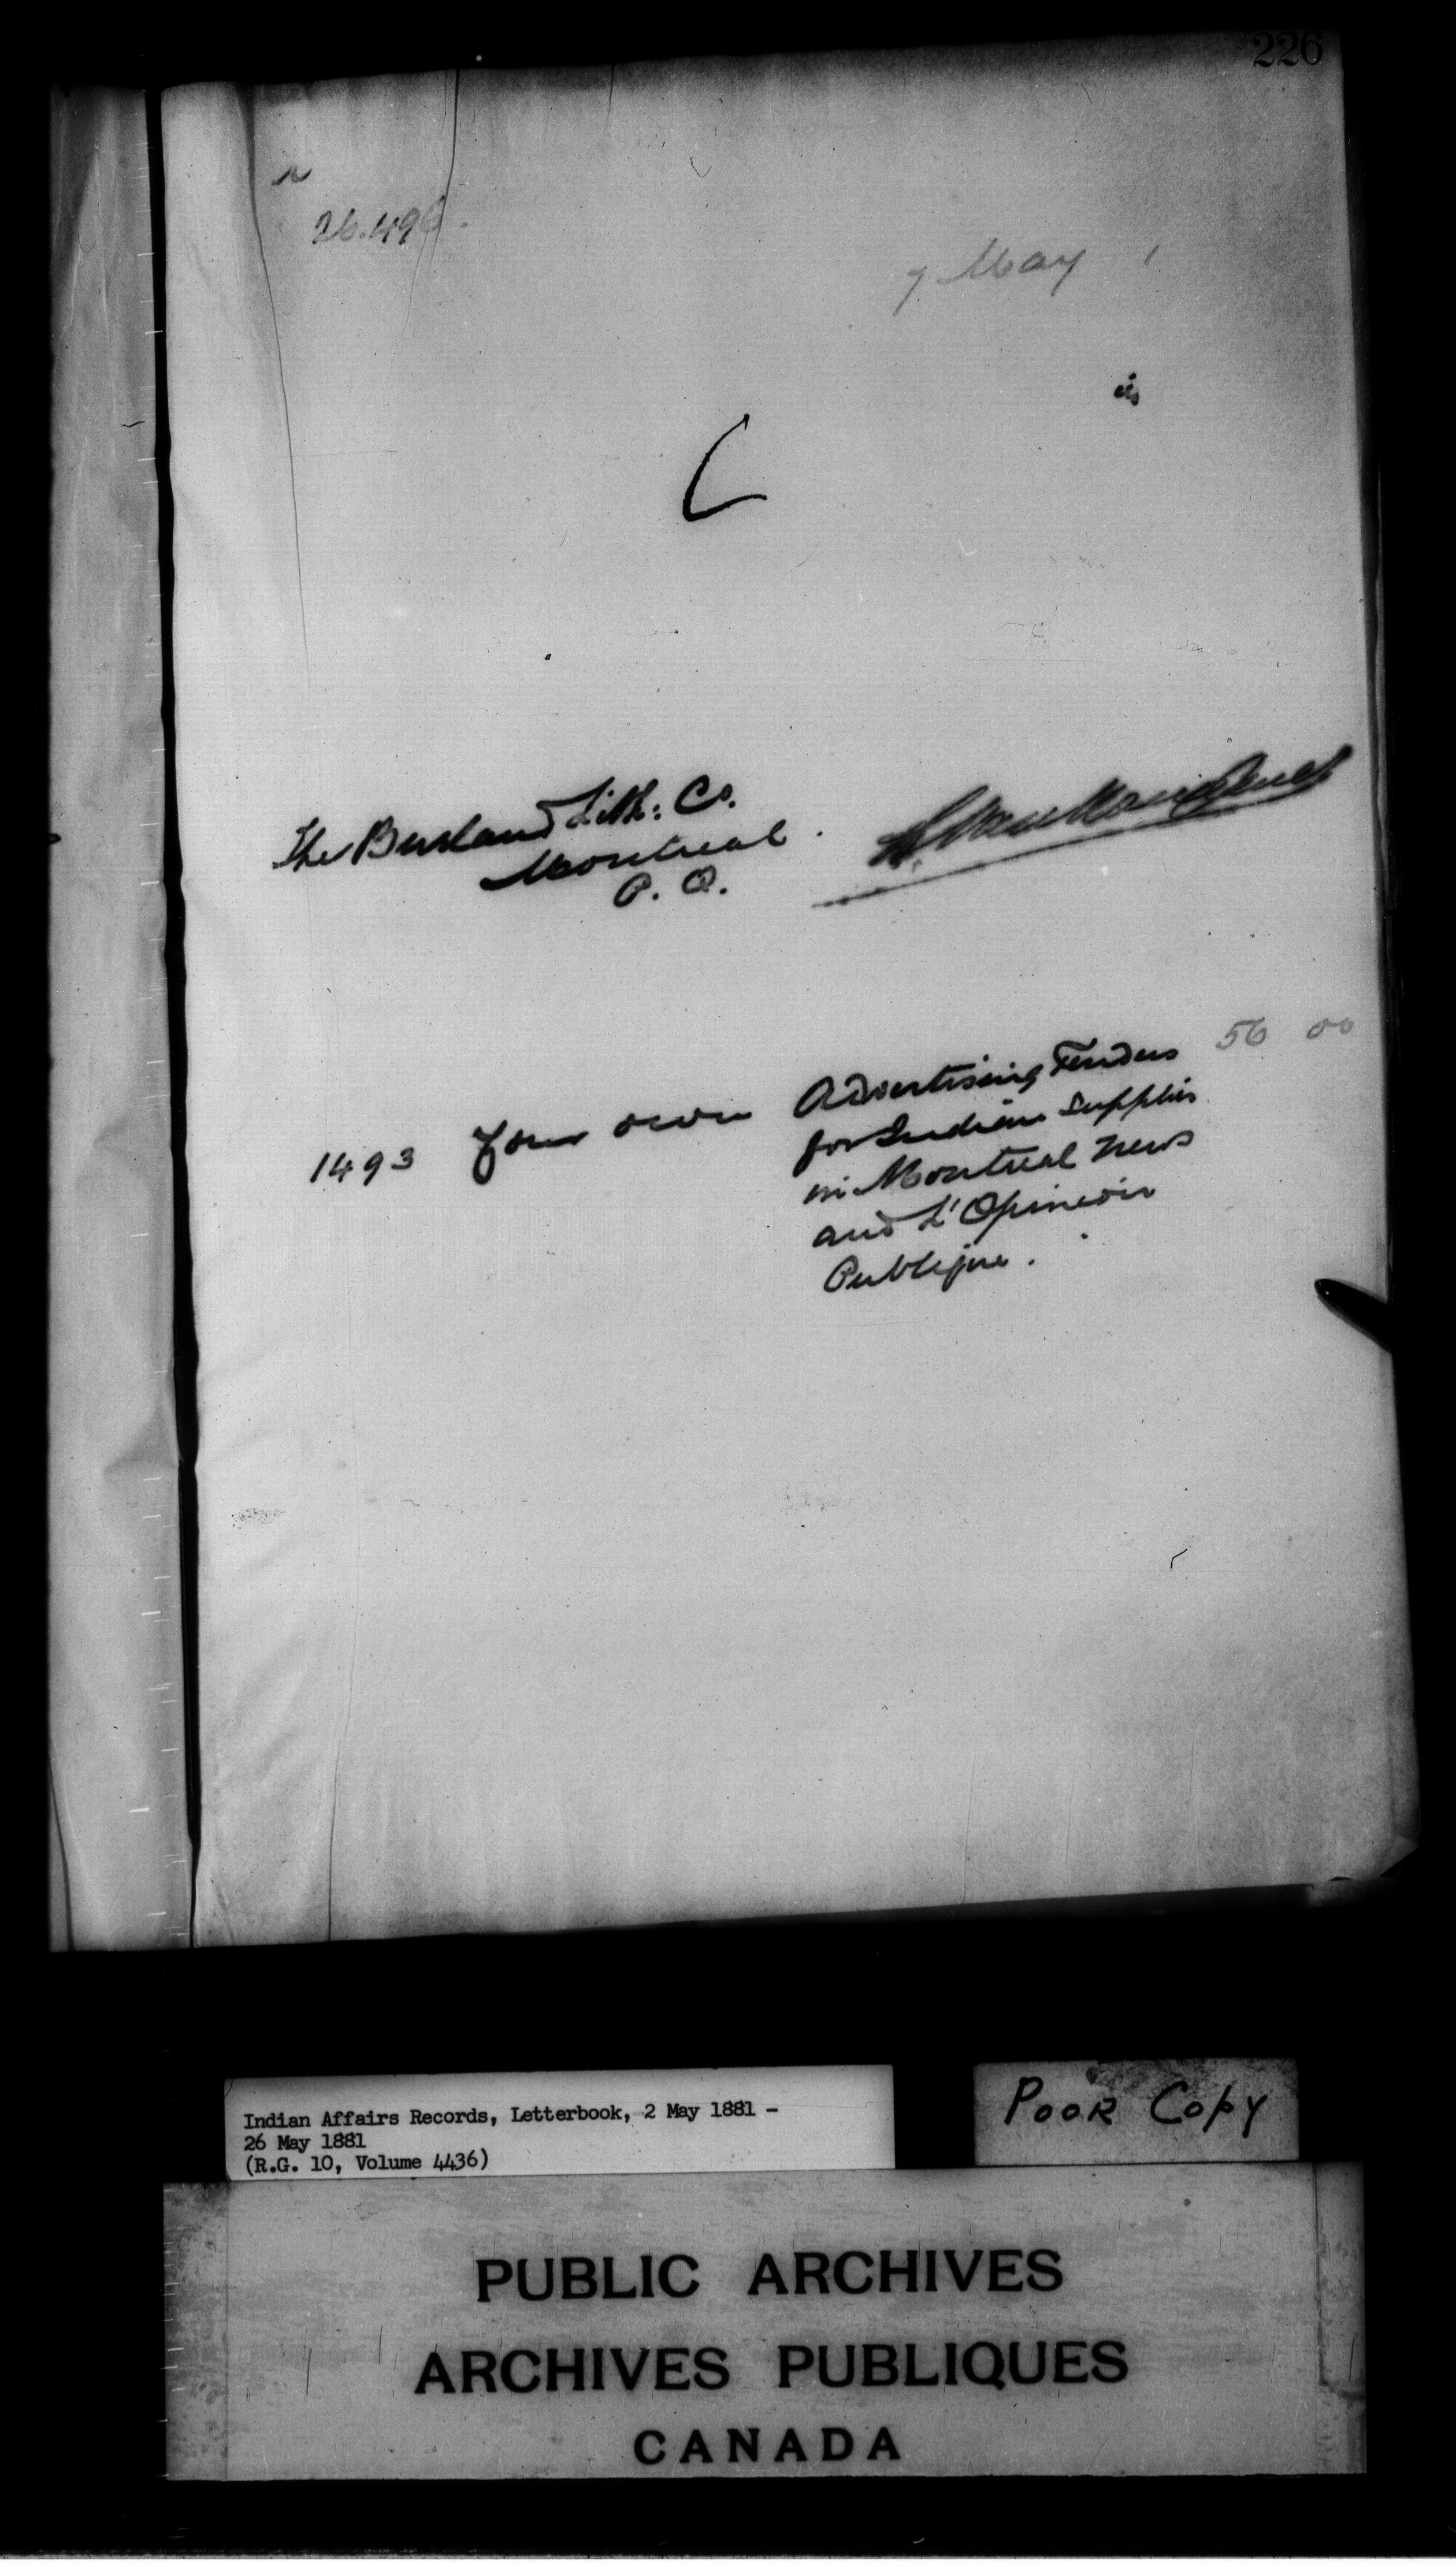 226
26.496.
7 May 1
The Burland Lith: Co.
Montreal
P. Q.
1493 Your own Advertising Tenders 56 00
for Indian Supplies
in Montreal News
and L'Opinion
Publique.
Indian Affairs Records, Letterbook, 2 May 1881 -
26 May 1881
(R.G. 10, Volume 4436)
Poor Copy
PUBLIC ARCHIVES
ARCHIVES PUBLIQUES
CANADA